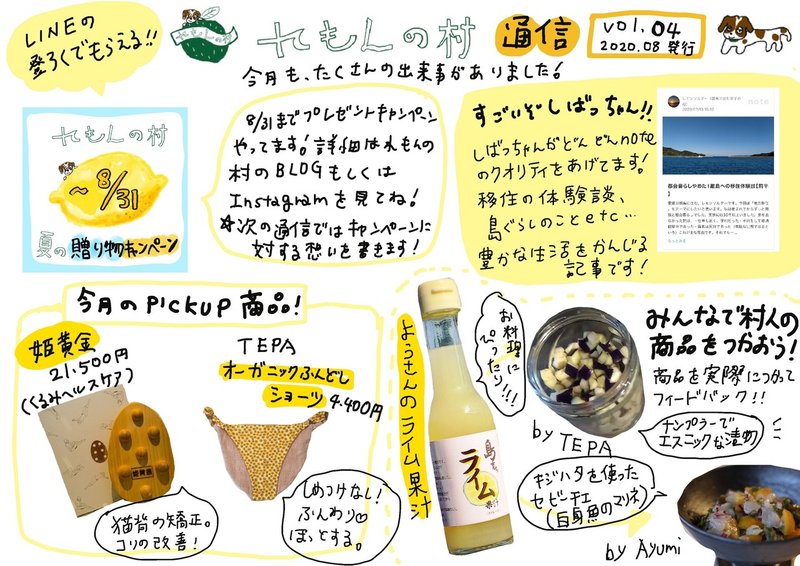 LINEの
登ろくでもらえる!!
れもんの村
れもんの村
通信
vol.04
2020.08 発行
今月も、たくさんの出来事がありました!
れもんの村
~8/31
夏の贈り物キャンペーン
8/31までプレゼントキャンペーン
やってます!詳細はれもんの
村のBLOGもしくは
Instagramを見てね!
☆次の通信ではキャンペーンに
対する想いを書きます!
すごいぞしばっちゃん!!
しばっちゃんがどんどんnote
のクオリティをあげてます。
移住の体験談、
島ぐらしのことetc…
豊かな生活をかんじる
記事です!
note
都会暮らしやめた!離島への移住体験談【前半】
もっとみる
今月のPICKUP商品!
姫黄金
21.500円
(くるみヘルスケア)
姫黄金
猫背の矯正。
コリの改善!
TEPA
オーガニックふんどし
ショーツ 4.400円
しめつけなし!
ふんわり♡
ほっとする。
ようさんのライム果汁
お料理に
ぴったり!!!
島の
ライム
果汁
みんなで村人の
商品をつかおう!
商品を実際につかって
フィードバック!!
by TEPA
ナンプラーで
エスニックな漬物
キジハタを使った
セビーチェ
(白身魚のマリネ)
by Ayumi